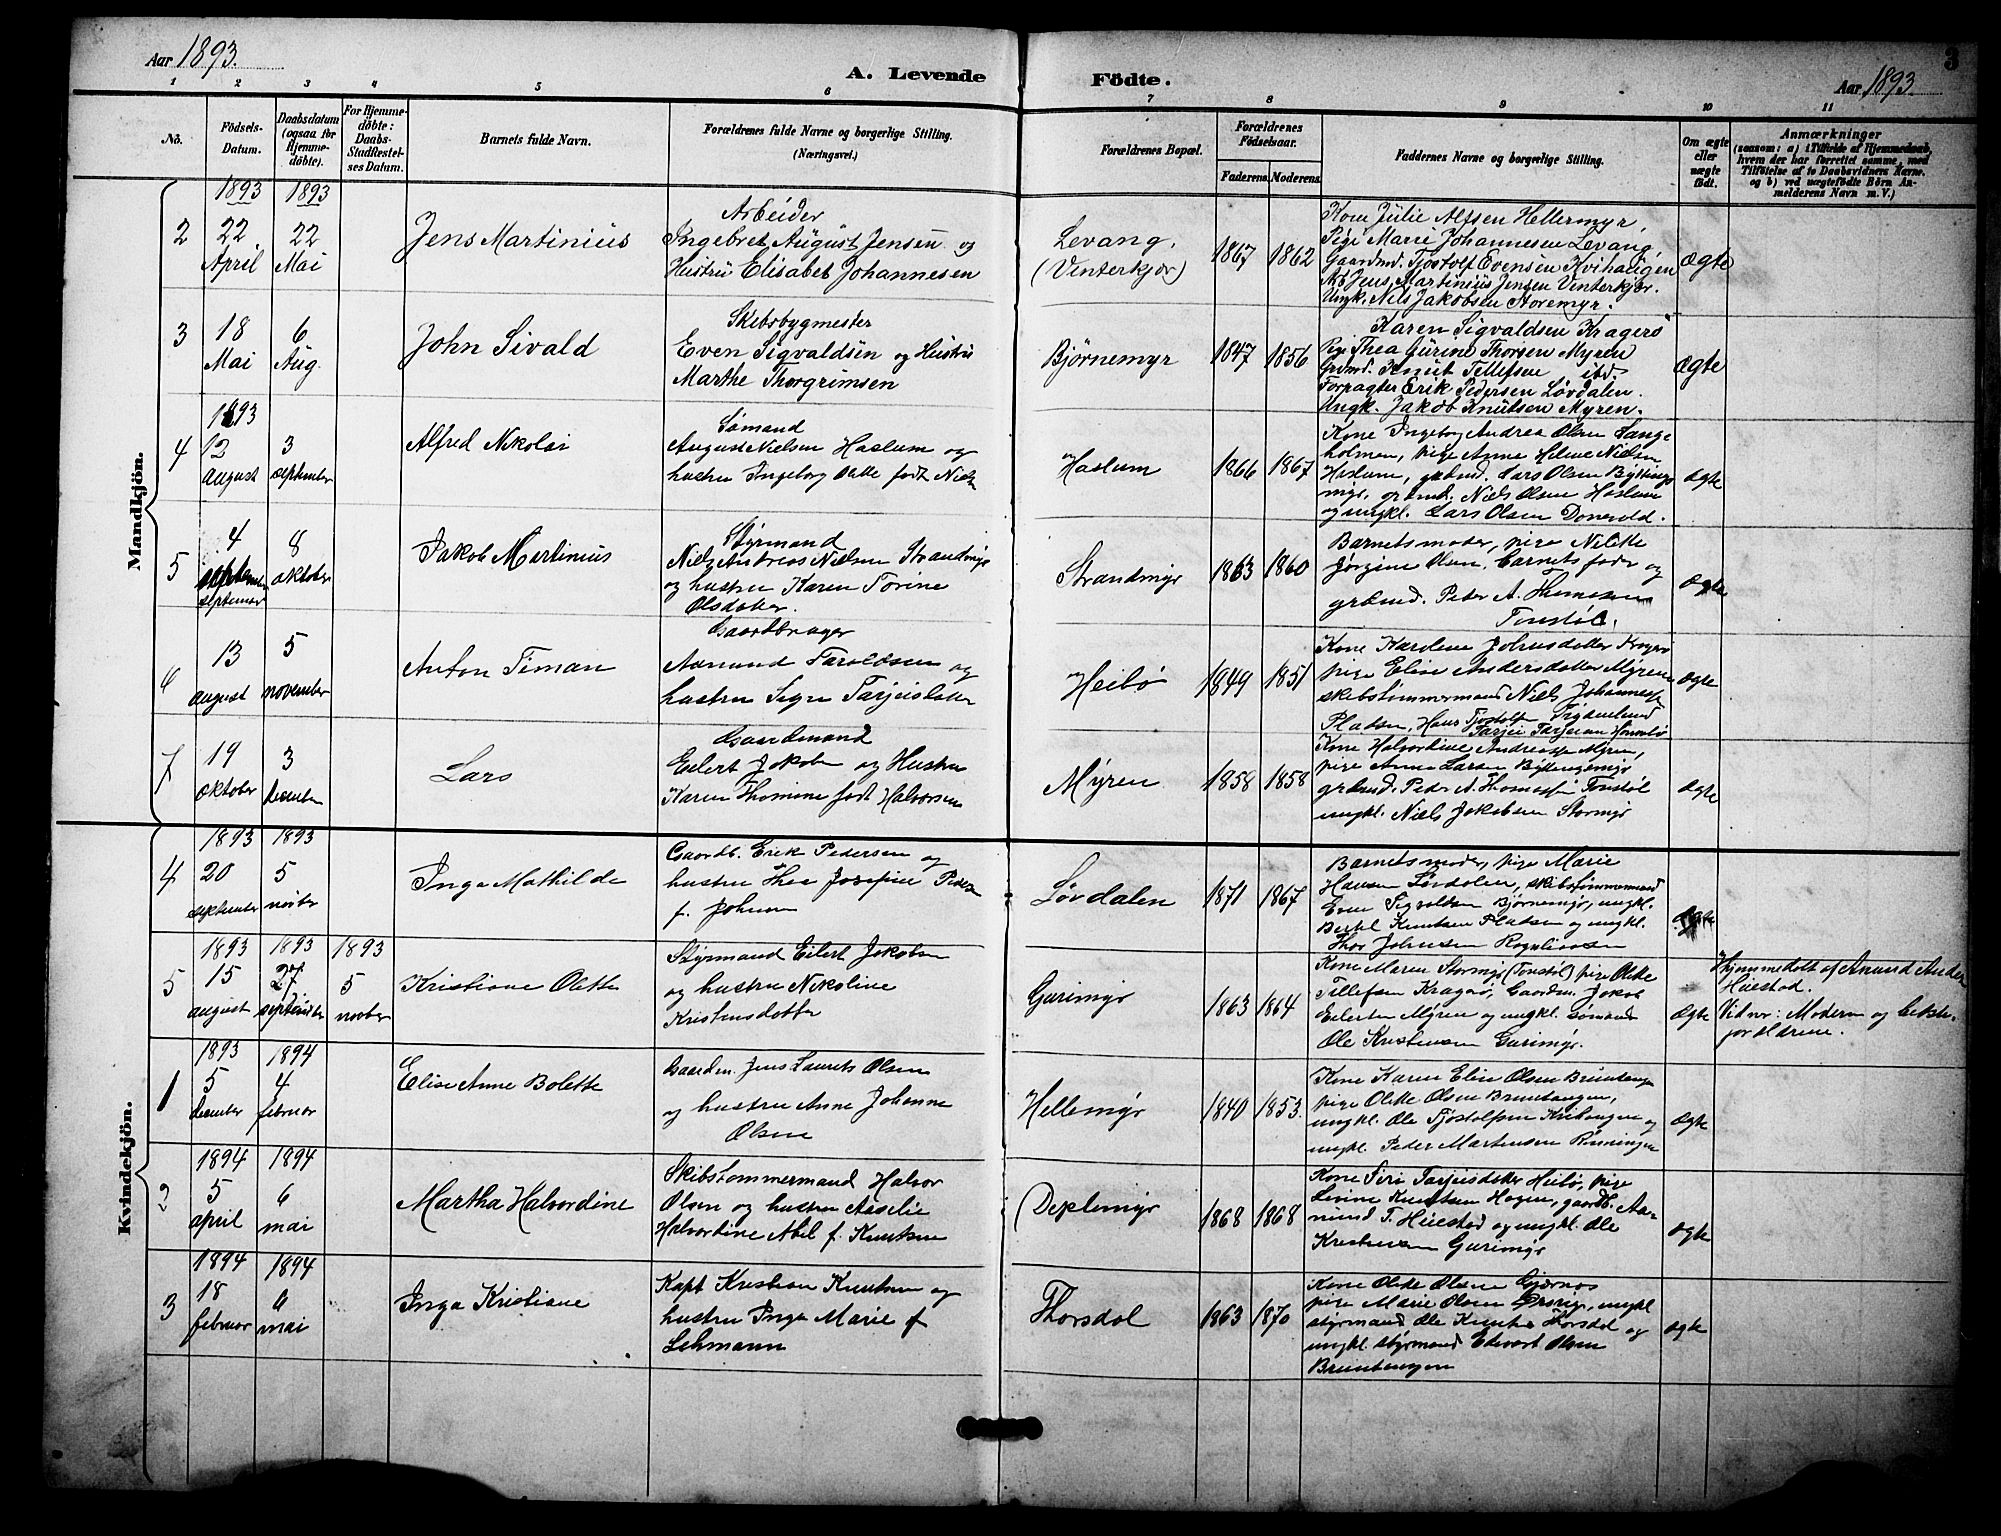 Aar 1893.
A. Levende Födte.
Aar 1893
3
1 2 3 4 5 6 7 8 9 10 11
No.
Födsels-Datum.
Daabsdatum (ogsaa for Hjemme-döbte).
For Hjemme-döbte: Daabs-Stadfæstel-ses Datum.
Barnets fulde Navn.
Forældrenes fulde Navne og borgerlige Stilling.
(Næringsvei.)
Forældrenes Bopæl.
Forældrenes Födselsaar.
Faderens. Moderens.
Faddernes Navne og borgerlige Stilling.
Om ægte eller uægte født.
Anmærkninger
(saasom: a) i Tilfælde af Hjemmedaab,
hvem der har forrettet samme, med
Tilföielse af to Daabsvidners Navne.
og b) ved uægtefödte Börn An-
melderens Navn m. V.)
Mandkjön.
1893 1893
2
22 April
22 Mai
Jens Martinius
Arbeider
Ingebret August Jensen og
Hustru Elisabet Johannesen
Levang,
(Vinterkjær)
1867 1862
Kone Julie Alfsen Hellermyr,
Pige Marie Johannesen Levang,
Gaardmd. Tjostolf Evensen Kvihaugen
Arb Jens Martinius Jensen Vinterkjær.
Ungk. Nils Jakobsen Storemyr.
Ægte
3
18 Mai
6 Aug.
John Sivald
Skibsbygmester
Even Sigvaldsen og Hustru
Marthe Thorgrimsen
Bjørnemyr
1847 1856
Karen Sigvaldsen Kragerø
Pige Thea Gurine Thorsen Myren
Grdmd. Knut Tellefsen ibd
Forpagter Erik Pedersen Løvdalen.
Ungk. Jakob Knutsen Myren.
Ægte
1893
4
12 august
3 september
Alfred Nikolai
Sømand
August Nielsen Haslum og
hustru Ingeborg Olette født Nielsen
Haslum
1866 1867
Kone Ingeborg Andrea Olsen Lange
holmen, pige Anne Helene Nielsen
Haslum, grdmd. Lars Olsen
myr, grdmd. Niels Olsen Haslum
og ungkl. Lars Olsen
ægte
5
4 september
8 oktober
Jakob Martinius
Styrmand
Niels Andreas Nielsen Strandmyr
og hustru Karen Torine
Olsdatter.
Strandmyr
1863 1860
Barnets moder, pige
Jørgine Olsen, barnets fader og
grdmd. Peter A. Thomassen
Tonstøl.
ægte
6
13 august
5 november
Anton Timan
Gaardbruger
Aanund Taroldsen og
hustru Signe Tarjeisdatter
Heibø
1849 1851
Kone Karoline Johnsdatter Kragerø
pige Elise Andersdatter Myren
skibstømmermand Niels Johannesen
Pladsen, Hans Tjostolfsen
Tarjei Tarjeisen
ægte
7
19 oktober
3 december
Lars
Gaardmand
Eilert Jakobsen og Hustru
Karen Thomine født Halvorsen
Myren
1858 1858
Kone Halvordine Andreassen Myren,
pige Anne Larsen
grdmd. Peder A. Thomassen Tonstøl
ungkl. Niels Jakobsen Stormyr
ægte
Kvindekjön.
1893 1893
4
20 september
5 novber
Inga Mathilde
Gaardb. Erik Pedersen og
hustru Thea Josefine Pedersen
f. Johnsen
Løvdalen
1871 1867
Barnets moder, pige Marie
Hansen Løvdalen, skibstømmermand
Even Sigvaldsen Bjørnemyr, ungkl.
Bertel Knutsen Pladsen og ungkl.
Thor Johnsen
ægte
1893 1893 1893
5
15 august
27 september
5 novber
Kristiane Olette
Styrmand Eilert Jakobsen
og hustru Nikoline
Kristensdatter
Gurimyr
1863 1864
Kone Maren Stormyr (Tonstøl) pige Olette
Tellefsen Kragerø, Gaardm. Jakob
Eilertsen Myren og ungkl. sømand
Ole Kristensen Gurimyr.
ægte
Hjemmedøbt af Aanund Anders
Huestad.
Vidner: Moderen og beste-
forældrene.
1893 1894
1
5 december
4 februar
Elise Anne Bolette
Gaardm. Jens Laurits Olsen
og hustru Anne Johanne
Olsen
Hellemyr
1840 1853.
Kone Karen Elise Olsen Bruntangen
pige Olette Olsen Bruntangen,
ungkl. Ole Tjostolfsen Kvihaugen og
ungkl. Peder Martensen Rønningen
ægte
1894 1894
2
5 april
6 mai
Martha Halvordine
Skibstømmermand Halvor
Olsen og hustru Aaselie
Halvordine Abel f. Knutsen
Deplemyr
1868 1868
Kone Siri Tarjeisdatter Heibø, pige
Levine Knutsen Hagen, gaardb. Aa-
nund T. Huestad og ungkl. Ole
Kristensen Gurimyr
ægte
1894 1894
3
18 februar
6 mai
Inga Kristiane
Kapt Kristian Knutsen og
hustru Inga Marie f
Lehmann
Thorsdal
1863 1870
Kone Olette Olsen
pige Marie Olsen, ungkl
styrmand Ole Knutsen Torsdal og
ungkl. styrmand Edvart Olsen
Bruntangen
ægte